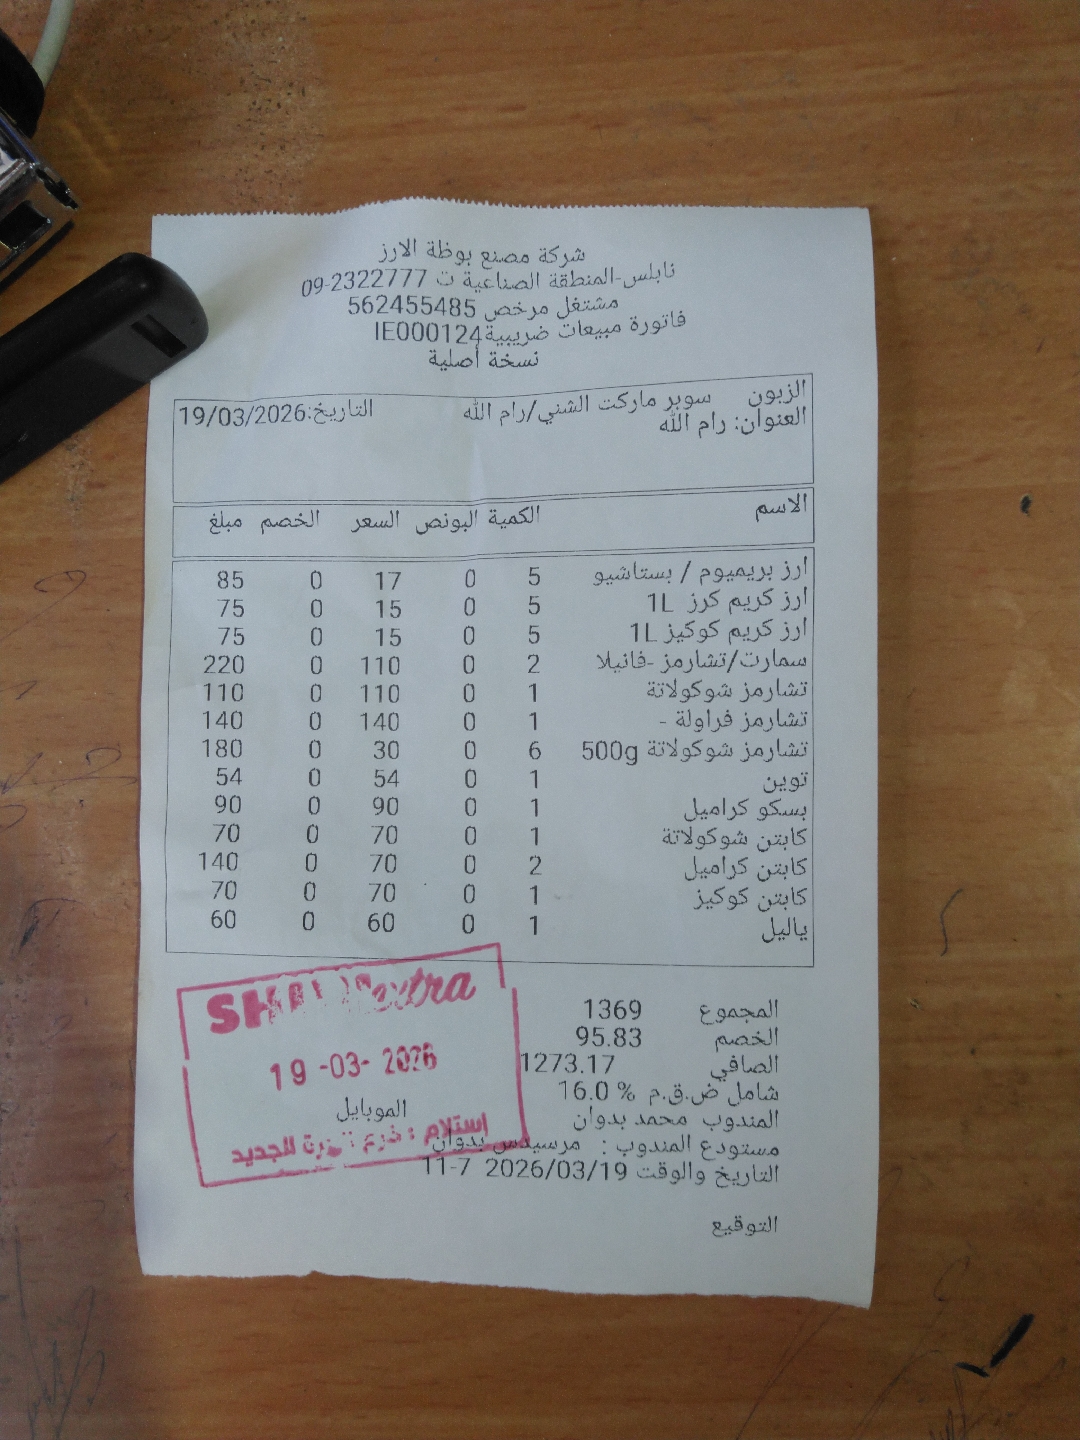 شركة مصنع بوظة الارز
نابلس-المنطقة الصناعية ت 09-2322777
مشتغل مرخص 562455485
فاتورة مبيعات ضريبية IE000124
نسخة أصلية
الزبون سوبر ماركت الشني/رام الله التاريخ:19/03/2026
العنوان: رام الله
الاسم الكمية البونص السعر الخصم مبلغ
ارز بريميوم / بستاشيو 5 0 17 0 85
ارز كريم كرز 1L 5 0 15 0 75
ارز كريم كوكيز 1L 5 0 15 0 75
سمارت/تشارمز -فانيلا 2 0 110 0 220
تشارمز شوكولاتة 1 0 110 0 110
تشارمز فراولة - 1 0 140 0 140
تشارمز شوكولاتة 500g 6 0 30 0 180
توين 1 0 54 0 54
بسكو كراميل 1 0 90 0 90
كابتن شوكولاتة 1 0 70 0 70
كابتن كراميل 2 0 70 0 140
كابتن كوكيز 1 0 70 0 70
ياليل 1 0 60 0 60
المجموع 1369
الخصم 95.83
الصافي 1273.17
شامل ض.ق.م % 16.0
المندوب محمد بدوان
الموبايل
مستودع المندوب : مرسيدس بدوان
التاريخ والوقت 2026/03/19 11-7
التوقيع
extra
19 -03- 2026
استلام : فرع